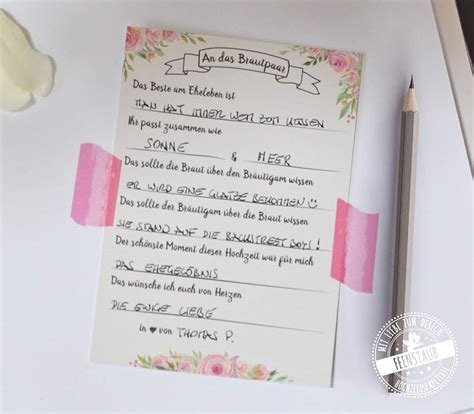 An das Brautpaar
Das Beste am Eheleben ist
MAN HAT IMMER WEN ZUM KÜSSEN
Ihr passt zusammen wie
SONNE & MEER
Das sollte die Braut über den Bräutigam wissen
ER WIRD EINE GLATZE BEKOMMEN ☺
Das sollte der Bräutigam über die Braut wissen
SIE STAND AUF DIE BACKSTREET BOYS!
Der schönste Moment dieser Hochzeit war für mich
DAS EHEGELÖBNIS
Das wünsche ich euch von Herzen
DIE EWIGE LIEBE
in ♥ von THOMAS P.
MIT LIEBE ZUM DESIGN
FEENSTAUB